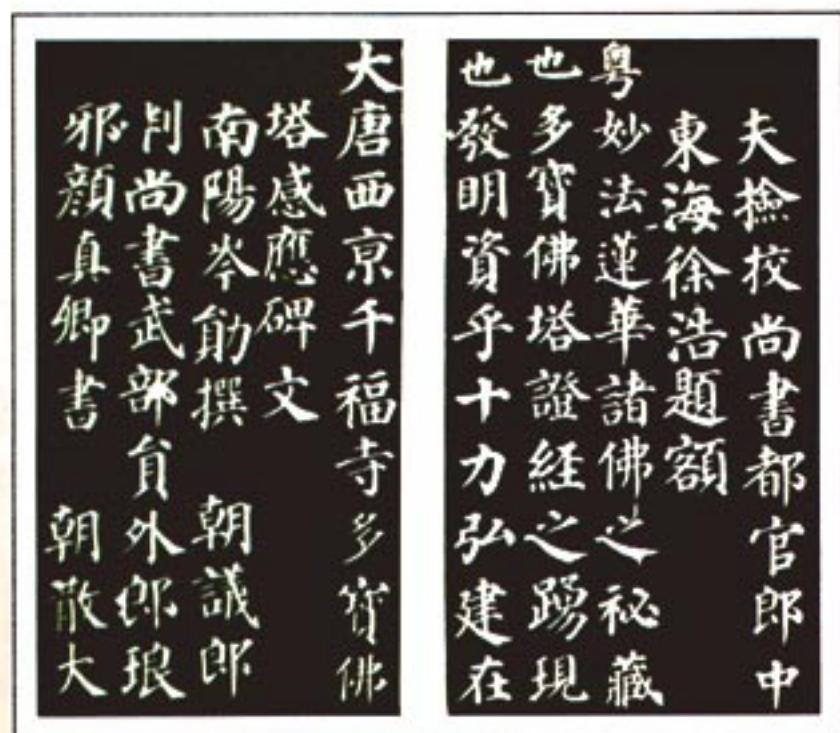 大唐西京千福寺多寶佛
塔感應碑文
南陽岑勛撰 朝議郎
判尚書武部員外郎琅
邪顏真卿書 朝散大
夫撿挍尚書都官郎中
東海徐浩題額
粵妙法蓮華諸佛之祕藏
也多寶佛塔證經之踴現
也發明資乎十力弘建在